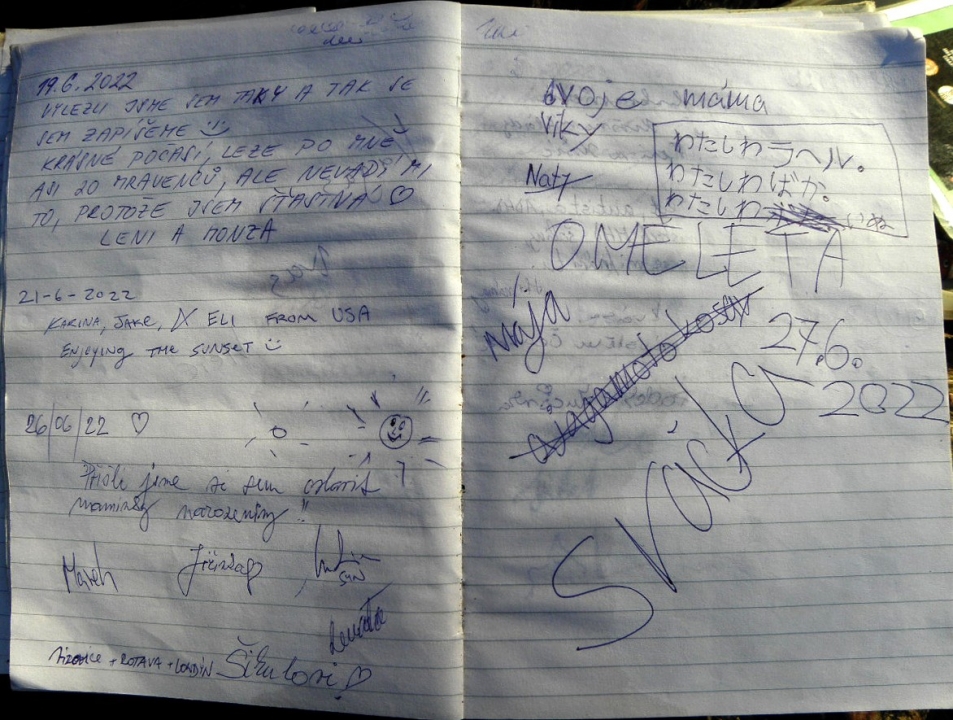 19.6.2022
VYLEZLI JSME SEM TAKY A TAK SE
SEM ZAPÍŠEME
KRÁSNÉ POČASÍ, LEZE PO MNĚ
ASI 20 MRAVENCŮ, ALE NEVADÍ MI
TO, PROTOŽE JSEM ŠŤASTNÁ ♡
LENI A MONZA
21-6-2022
KARINA, JAKE, ELI FROM USA
ENJOYING THE SUNSET
26/06/22 ♡
Přišli jsme si sem oslavit
maminky narozeniny"
Marek
SUN
Renata
+ ROTAVA + LONDÝN
tvoje máma
Viky
Naty
わたしわラヘル。
わたしわばか。
わたしわ いぬ
OMELETA
Mája
27.6.
2022
SVÁČKO